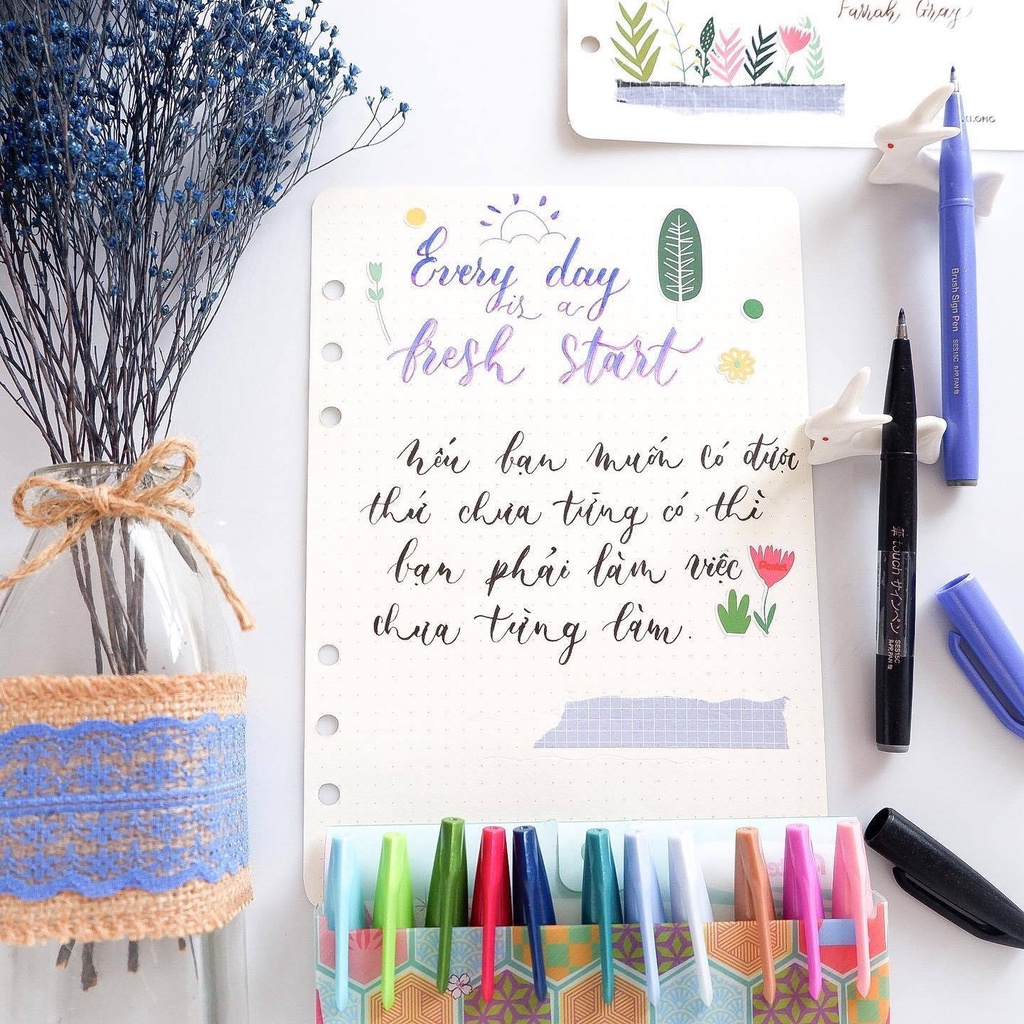 Farrah Gray
Every day
is a
fresh start
nếu bạn muốn có được
thứ chưa từng có, thì
bạn phải làm việc
chưa từng làm.
Pentel
Brush Sign Pen SES15C
touch サインペン SES15C